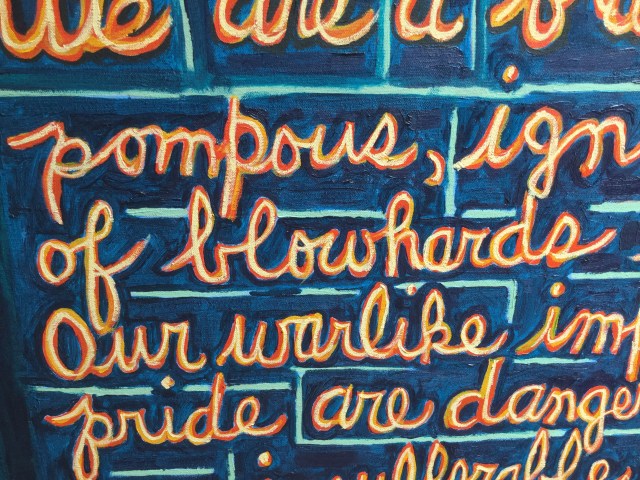 We are a
pompous, ign
of blowhards
Our warlike imp
pride are dange